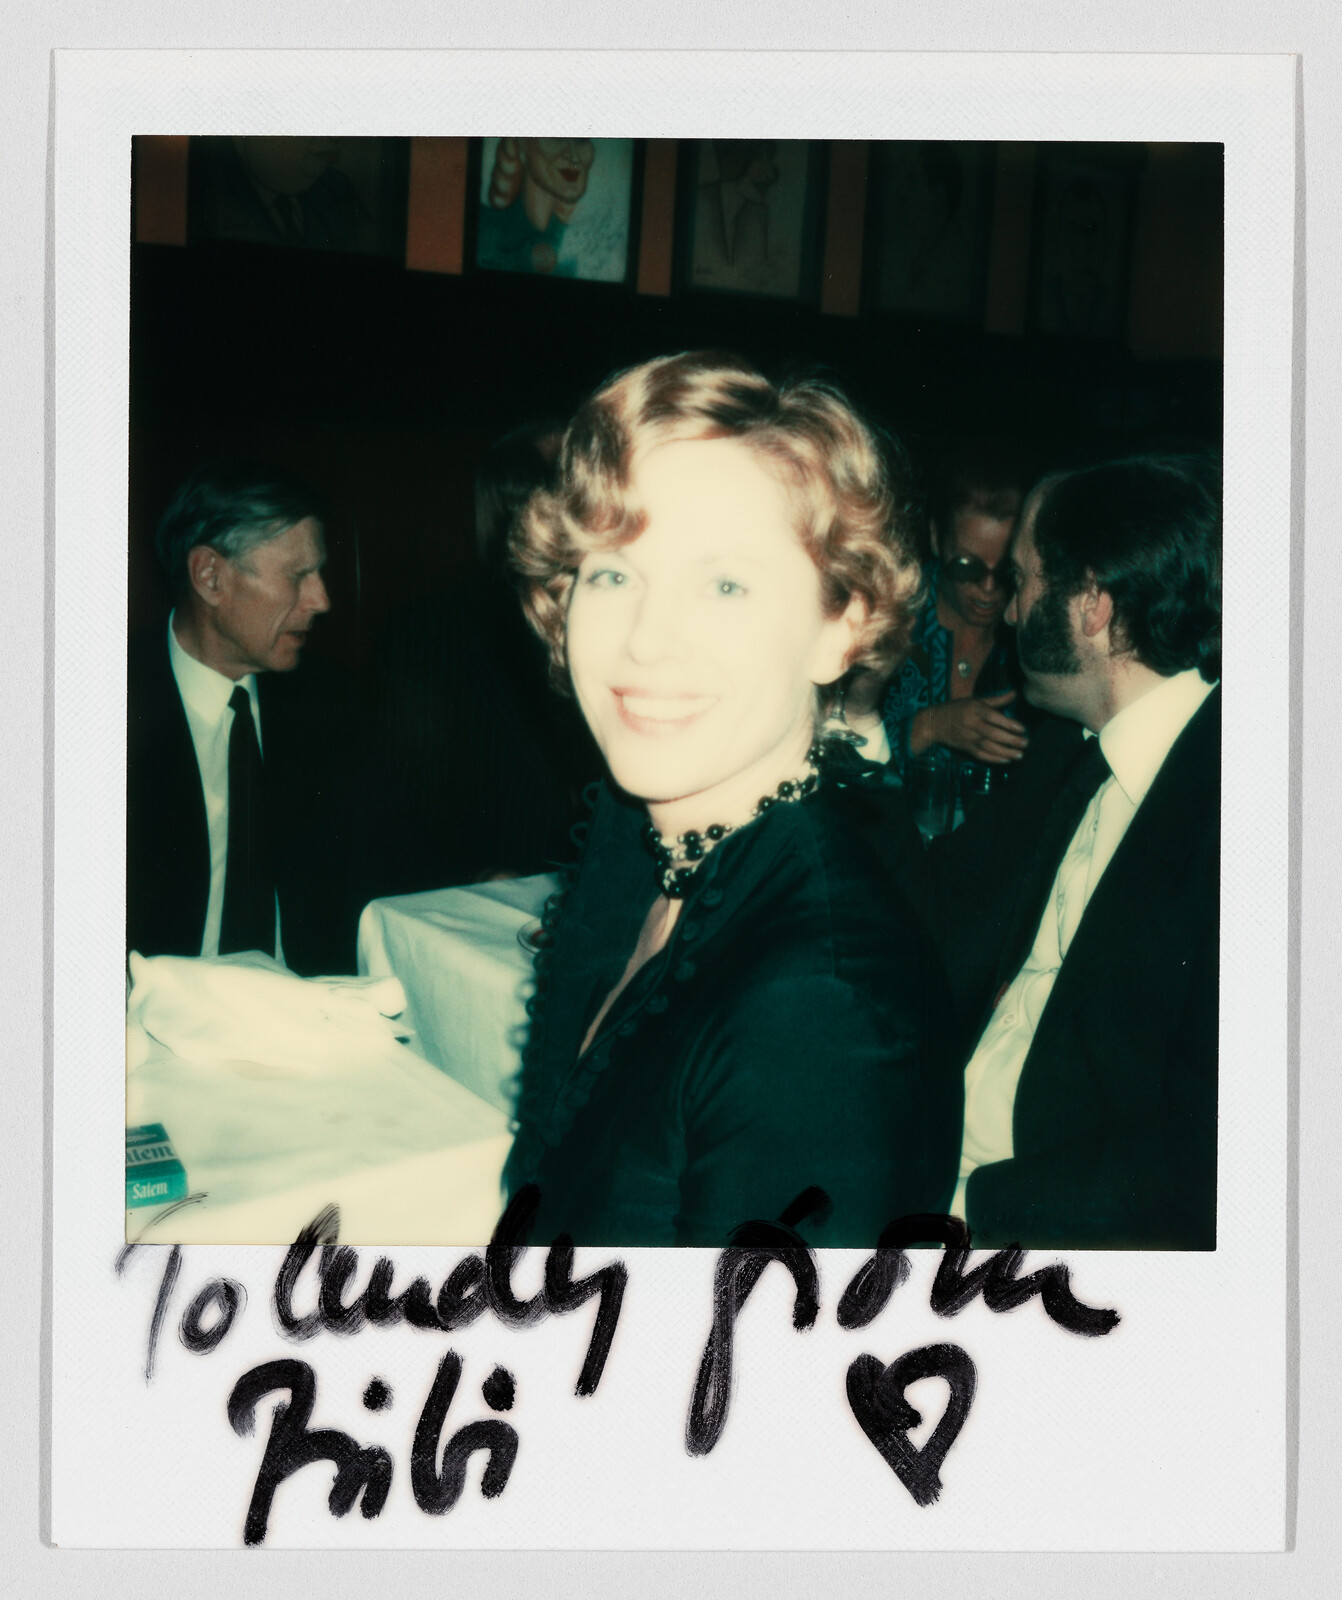 alem
Salem
To Andy from
Bibi